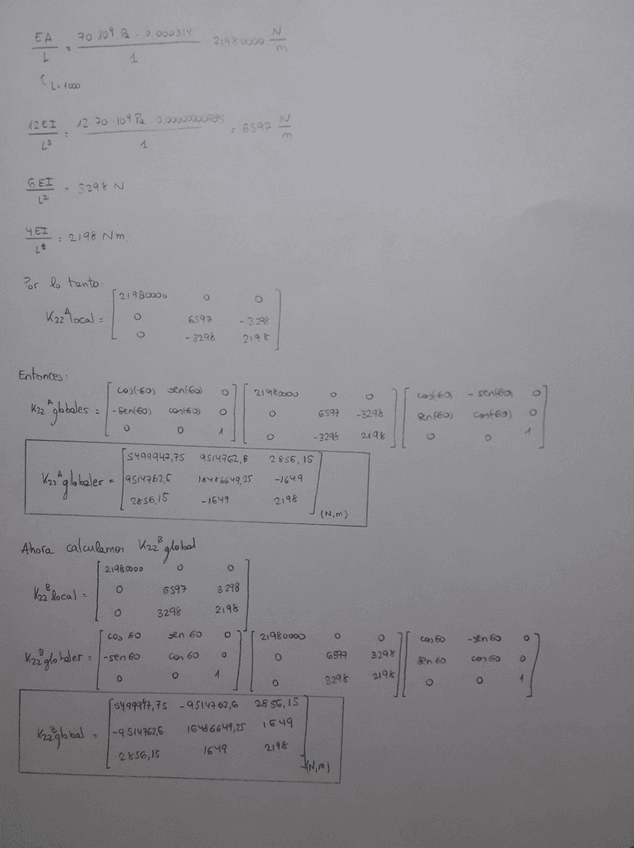 EA/L = 70·10⁹ Pa · 0.000314 / 1 = 21980000 N/m
L=1000
12EI/L³ = 12·70·10⁹ Pa / 1 = 6597 N/m
6EI/L² = 3298 N
4EI/L = 2198 Nm
Por lo tanto:
K22ᴬ local = [21980000 0 0
0 6597 -3298
0 -3298 2198]
Entonces:
K22ᴬ globales = [cos(-60) sen(-60) 0] [21980000 0 0] [cos(-60) -sen(-60) 0]
[-sen(-60) cos(-60) 0] [0 6597 -3298] [sen(-60) cos(-60) 0]
[0 0 1] [0 -3298 2198] [0 0 1]
K22ᴬ globales = [5499947,75 9514762,6 2856,15
9514762,6 16486649,25 -1649
2856,15 -1649 2198] (N,m)
Ahora calculamos K22ᴮ global
K22ᴮ local = [21980000 0 0
0 6597 3298
0 3298 2198]
K22ᴮ globales = [cos 60 sen 60 0] [21980000 0 0] [cos 60 -sen 60 0]
[-sen 60 cos 60 0] [0 6597 3298] [sen 60 cos 60 0]
[0 0 1] [0 3298 2198] [0 0 1]
K22ᴮ global = [5499947,75 -9514762,6 2856,15
-9514762,6 16486649,25 1649
2856,15 1649 2198] (N,m)